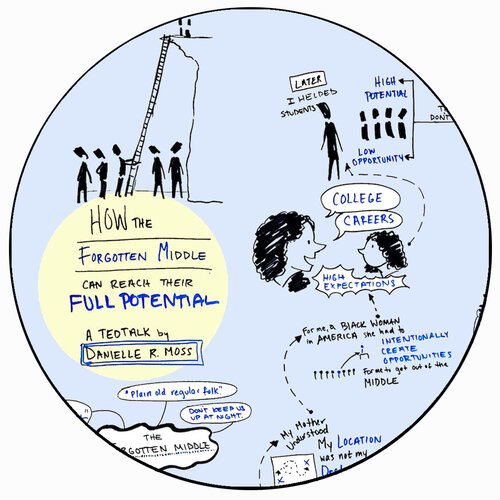 HOW THE
FORGOTTEN MIDDLE
CAN REACH THEIR
FULL POTENTIAL
A TEDTALK by
DANIELLE R. MOSS
"Plain old regular folk."
DON'T KEEP US
UP AT NIGHT.
THE
FORGOTTEN MIDDLE
LATER
I HELPED
STUDENTS
HIGH
POTENTIAL
DON'T
LOW
OPPORTUNITY
COLLEGE
CAREERS
HIGH
EXPECTATIONS
For me, a BLACK WOMAN
in AMERICA she had to
INTENTIONALLY
CREATE
OPPORTUNITIES
For me to get out of the
MIDDLE
My Mother
Understood
My LOCATION
was not my